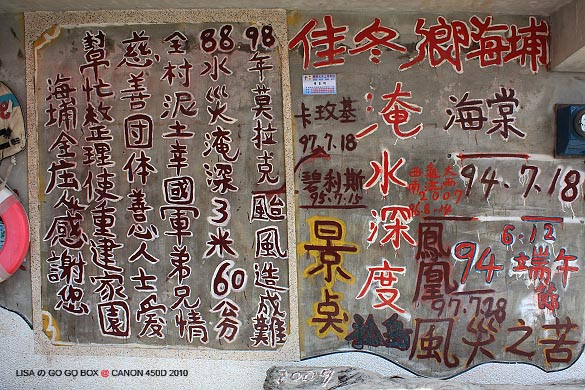 98年莫拉克颱風造成難
88水災淹深3米60分
全村泥土幸國軍弟兄情
慈善團体善心人士愛
幫忙整理使重建家園
海埔全庄感謝您
佳冬鄉海埔
淹水深度
景点
卡玫基
97.7.18
碧利斯
95.7.15
海棠
94.7.18
94
6.12
端午節
鳳凰
97.7.28
風災之苦
LISA の GO GO BOX @ CANON 450D 2010